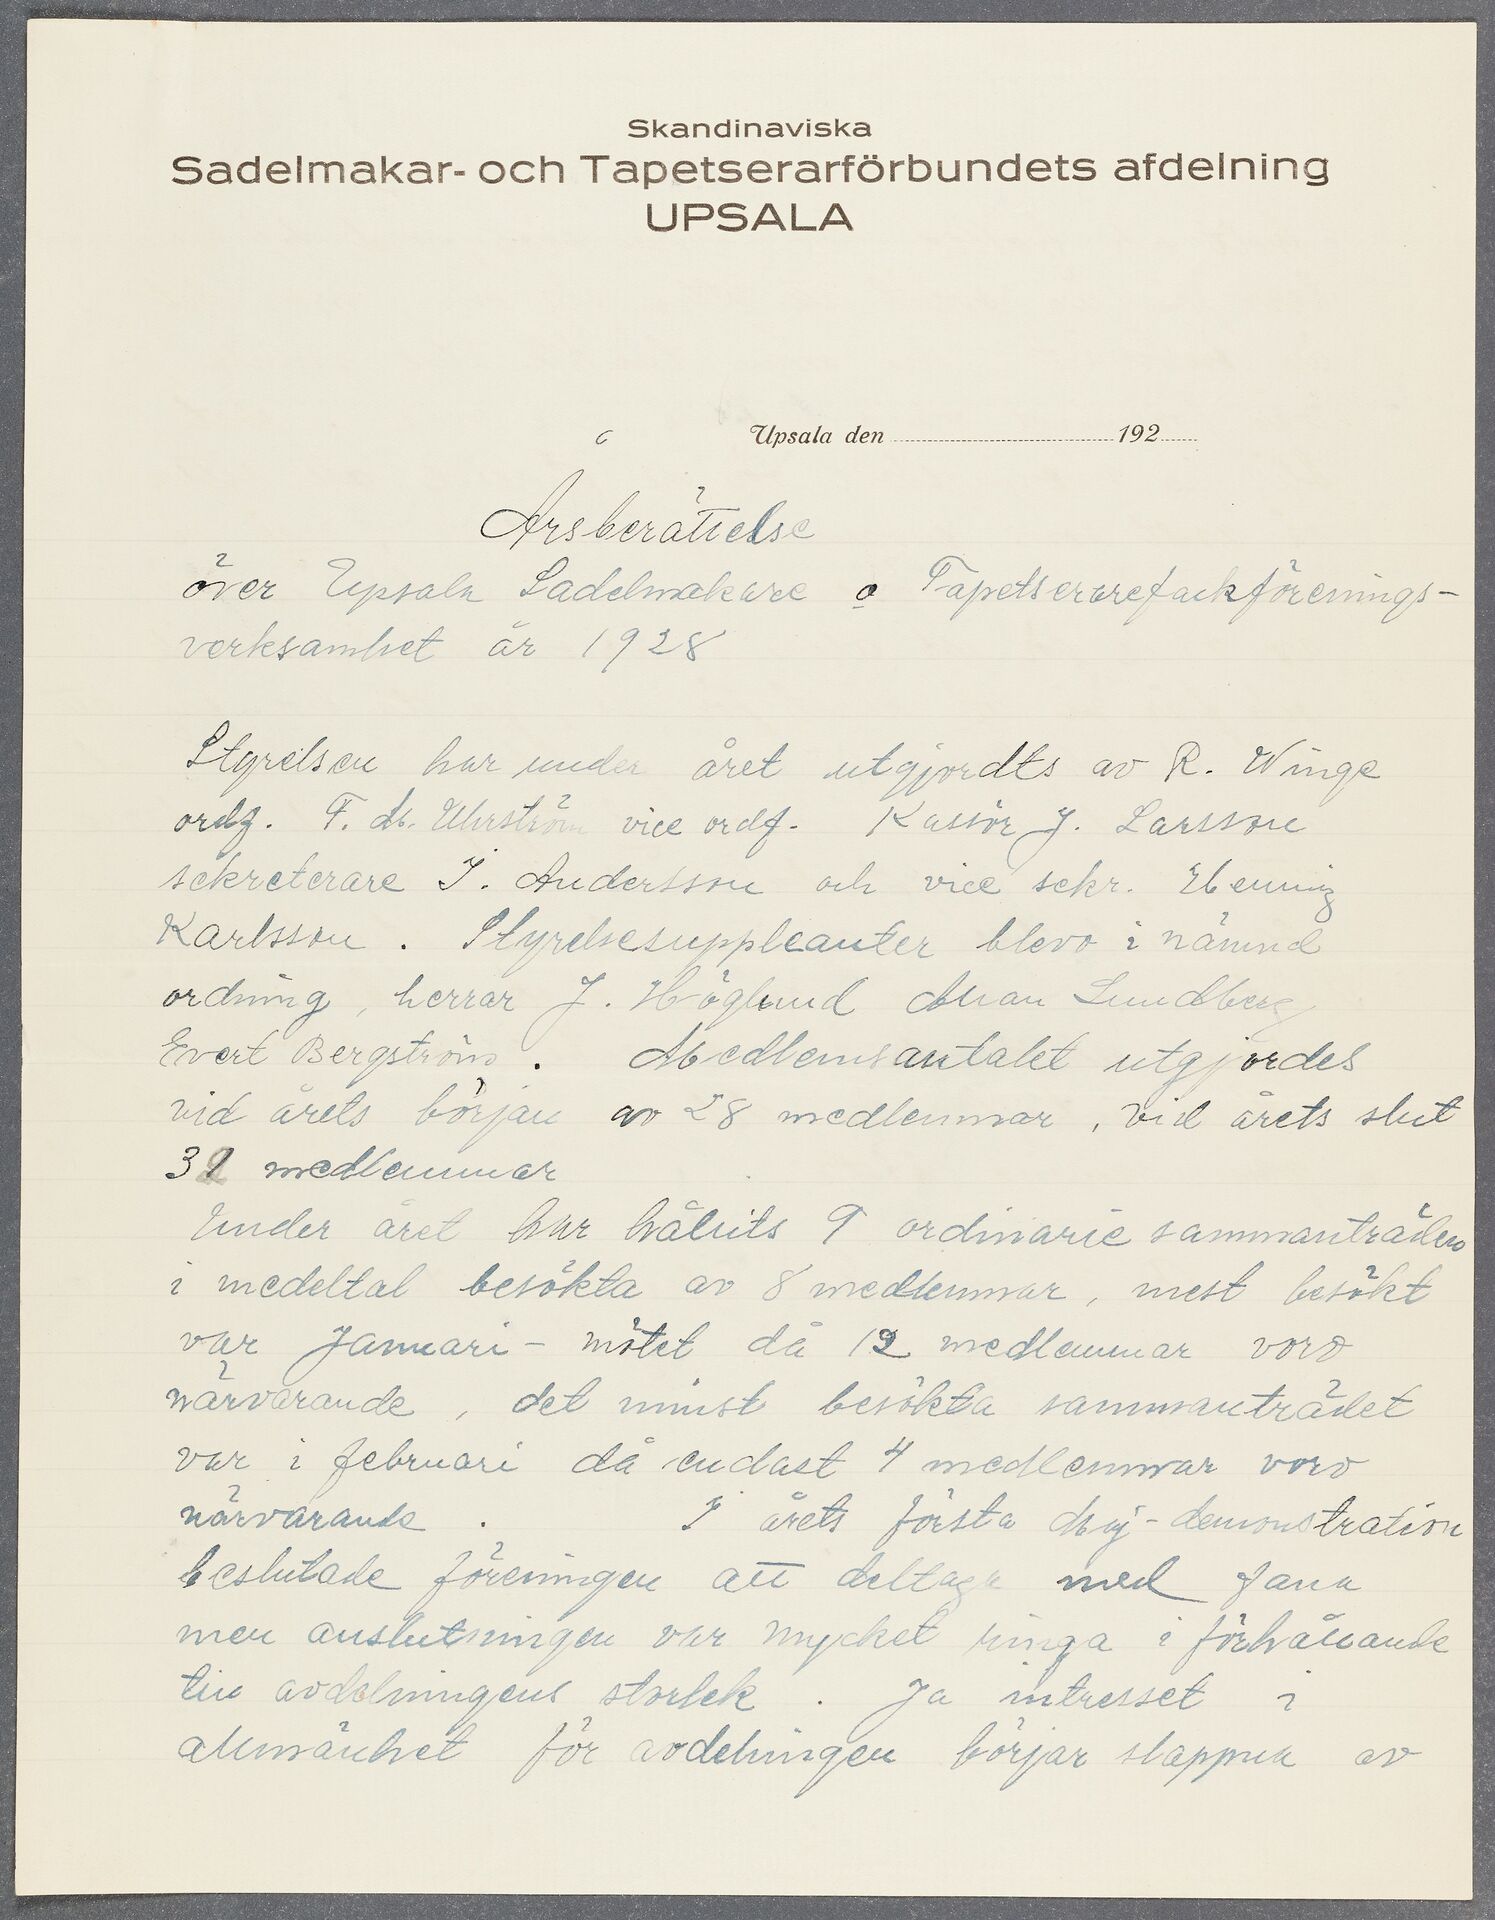 Skandinaviska
Sadelmakar- och Tapetserarförbundets afdelning
UPSALA
Upsala den 192
Årsberättelse
över Upsala Sadelmakare o Tapetserarefackförenings-
verksamhet år 1928
Styrelsen har under året utgjordts av R. Winge
ordf. F. M. Uhrström vice ordf. Kassör J. Larsson
sekreterare I. Andersson och vice sekr. Henning
Karlsson. Styrelsesuppleanter blevo i nämnd
ordning, herrar J. Höglund Allan Lundberg
Evert Bergström. Medlemsantalet utgjordes
vid årets början av 28 medlemmar, vid årets slut
medlemmar
Under året har hållits 9 ordinarie sammanträden
i medeltal besökta av 8 medlemmar, mest besökt
var Januari-mötet då 12 medlemmar voro
närvarande, det minst besökta sammanträdet
var i februari då endast 4 medlemmar voro
närvarande. I årets första Maj-demonstration
beslutade föreningen att deltaga med fana
men anslutningen var mycket ringa i förhållande
till avdelningens storlek. Ja intresset i
allmänhet för avdelningen börjar slappna av